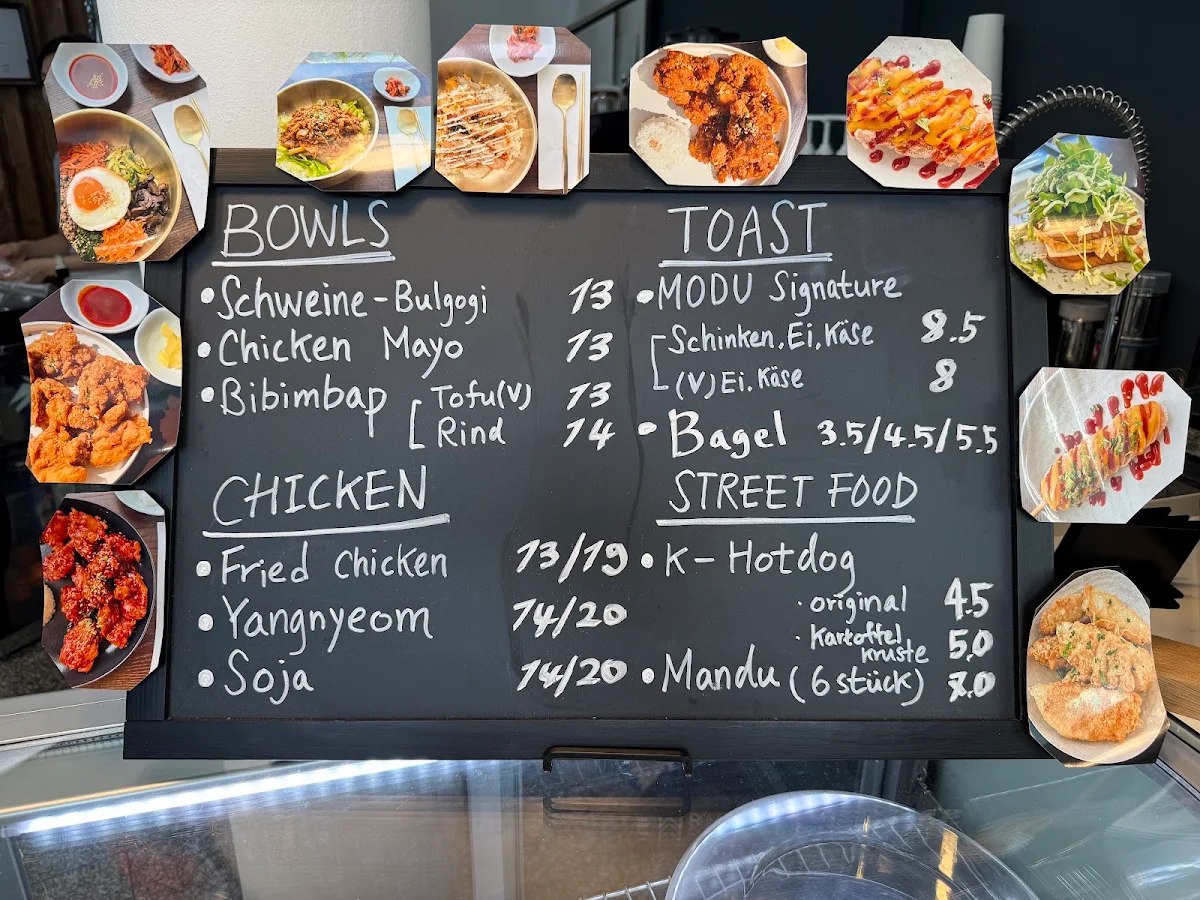 BOWLS
• Schweine-Bulgogi 13
• Chicken Mayo 13
• Bibimbap [ Tofu (V) 13
Rind 14
CHICKEN
• Fried Chicken 13/19
• Yangnyeom 14/20
• Soja 14/20
TOAST
• MODU Signature
[ Schinken, Ei, Käse 8.5
(V) Ei, Käse 8
• Bagel 3.5/4.5/5.5
STREET FOOD
• K-Hotdog
· original 4.5
· Kartoffel
kruste 5.0
• Mandu (6 stück) 7.0